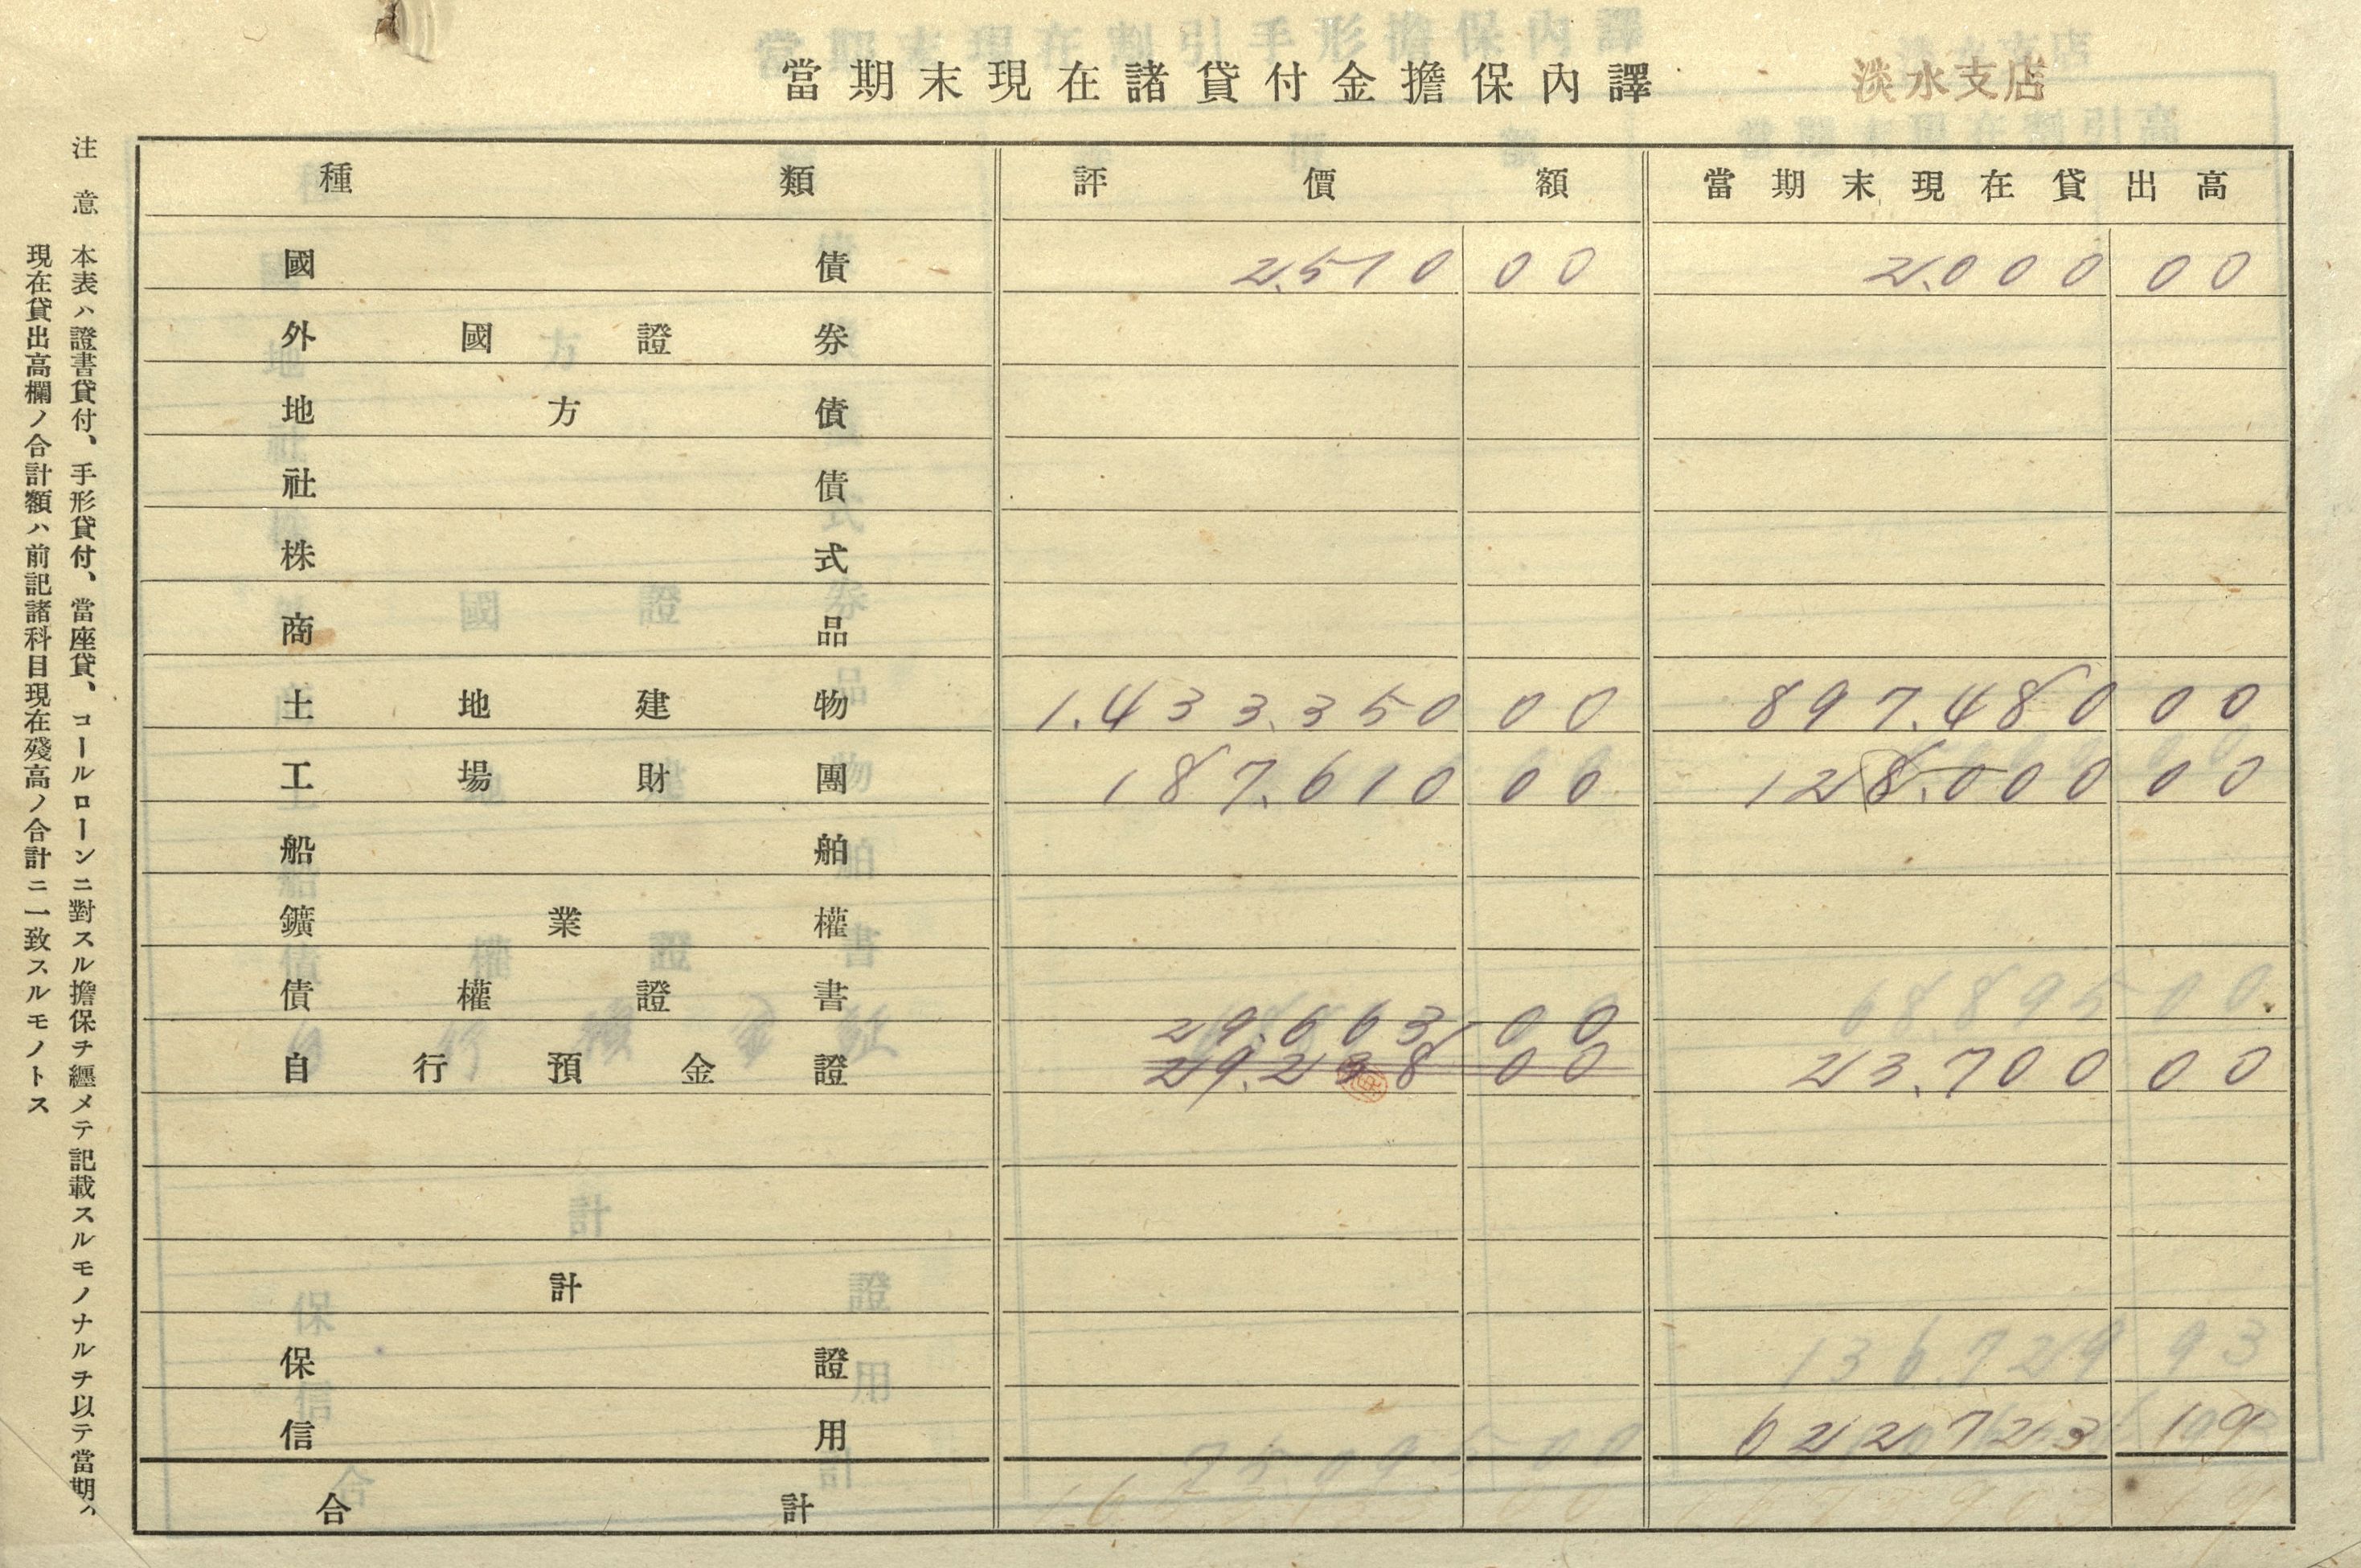 當期末現在諸貸付金擔保內譯 淡水支店
種類 評價額 當期末現在貸出高
國債 2.510 00 2.000 00
外國證券
地方債
社債
株式
商品
土地建物 1.433.350 00 897.480 00
工場財團 187.610 00 128.000 00
船舶
鑛業權
債權證書
29.663 00
自行預金證 29.238 00 23.700 00
計
保證
信用 622723 19
合計
注意 本表ハ證書貸付、手形貸付、當座貸、コールローンニ對スル擔保ヲ纒メテ記載スルモノナルヲ以テ當期ノ
現在貸出高欄ノ合計額ハ前記諸科目現在殘高ノ合計ニ一致スルモノトス